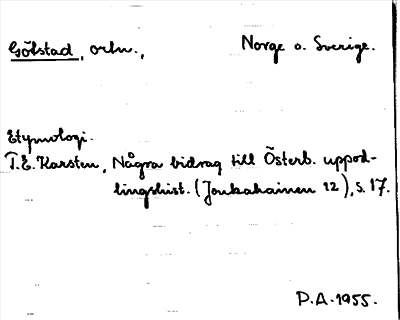 Götstad, ortn., Norge o. Sverige.
Etymologi.
T.E. Karsten, Några bidrag till Österb. uppod-
lingshist. (Joukahainen 12), s. 17.
P.A. 1955.